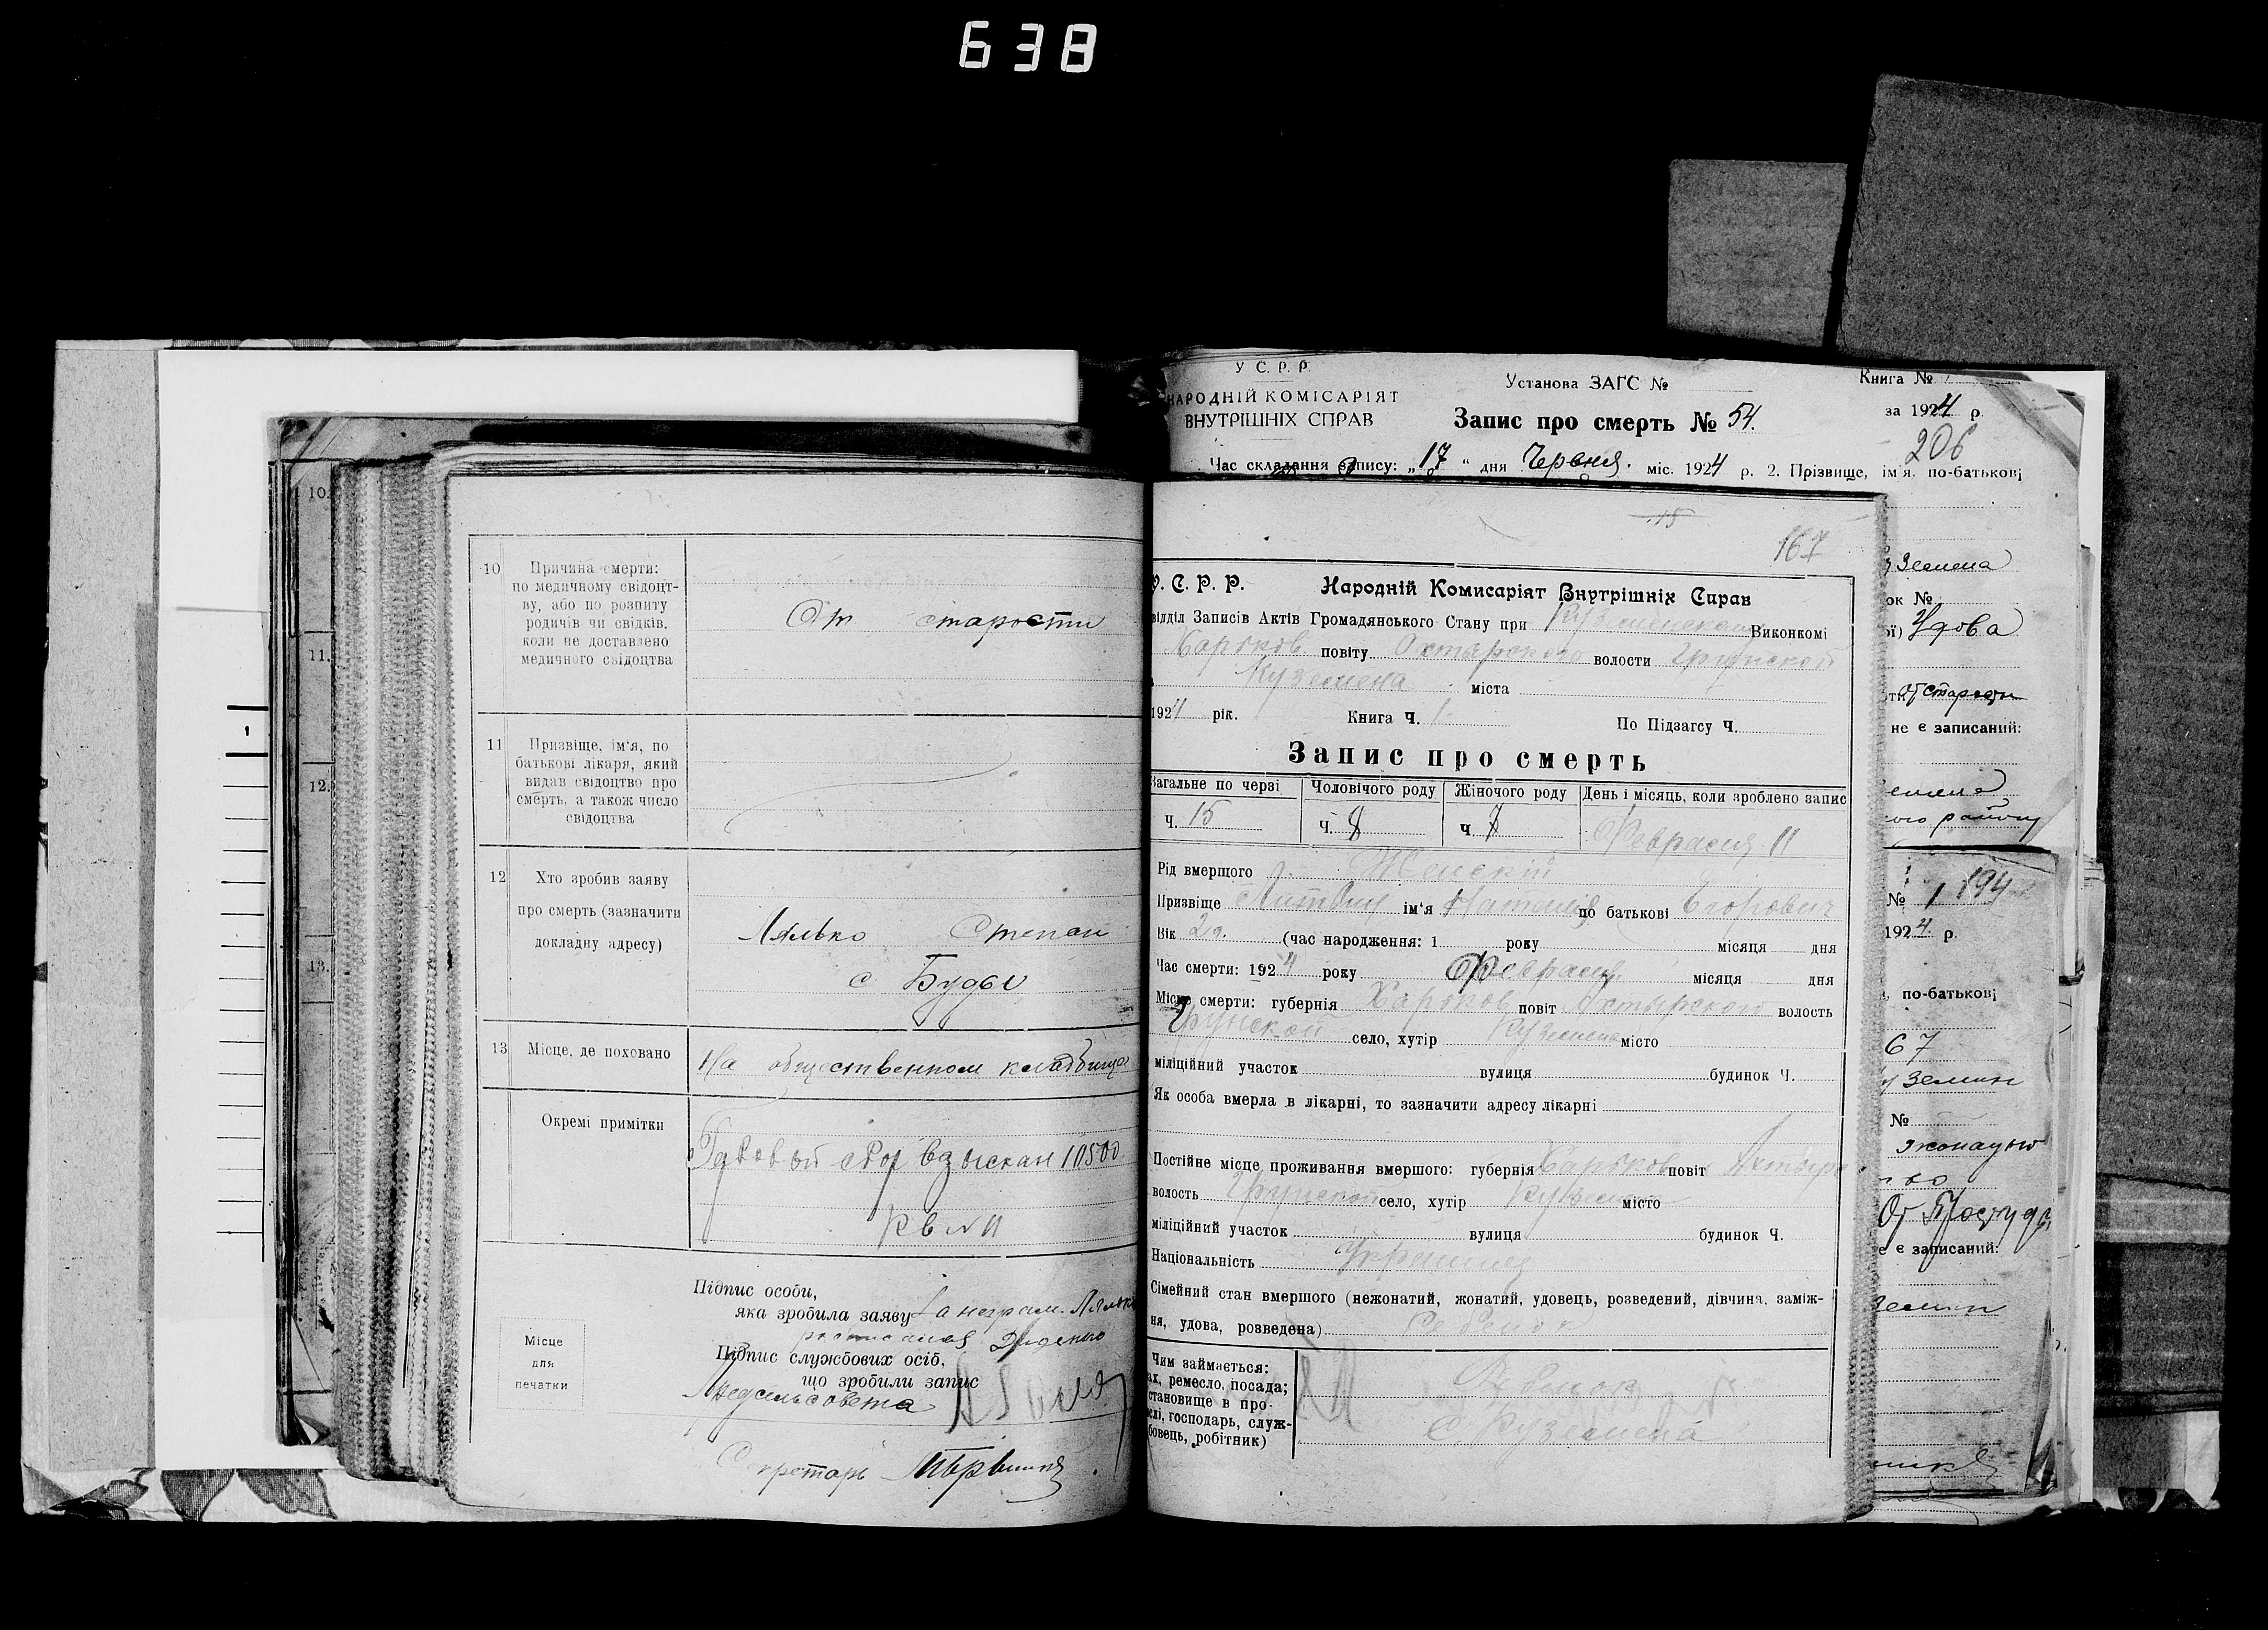 638
10.
11.
12.
13.
1
10 Причина смерти:
по медичному свідоцт-
ву, або по розпиту
родичів чи свідків,
коли не доставлено
медичного свідоцтва
От старости
11 Призвіще, ім'я, по
батькові лікаря, який
видав свідоцтво про
смерть, а також число
свідоцтва
12 Хто зробив заяву
про смерть (зазначити
докладну адресу)
Лялько Степан
с Буды
13 Місце, де поховано На общественном кладбище
Окремі примітки
взыскан 10500
Кв № 11
Підпис особи,
яка зробила заяву За неграм. Лялько
Підпис службових осіб,
що зробили запис
Предсельсовета
Секретарь
Місце
для
печатки
У С. Р. Р.
НАРОДНІЙ КОМІСАРІЯТ
ВНУТРІШНІХ СПРАВ
Установа ЗАГС №
Запис про смерть № 54.
Книга №
за 1924 р.
206
Час складання запису: „17“ дня Червня міс. 1924 р. 2. Прізвище, ім'я, по-батькові
15
167
У. С. Р. Р. Народній Комисаріят Внутрішніх Справ
відділ Записів Актів Громадянського Стану при Куземенском Виконкомі
Харьков повіту Охтырского волости Грунской
Куземена міста
1924 рік. Книга Ч. 1 По Підзагсу Ч.
Запис про смерть
Загальне по черзі Чоловічого роду Жіночого роду День і місяць, коли зроблено запис
Ч. 15 Ч. 8 Ч. 7 Февраля 11
Рід вмерщого Женский
Призвіще Литвин ім'я Наталия по батькові Егорович
Вік 2 г. (час народження: 1 року місяця дня
Час смерти: 1924 року Февраля місяця дня
Місце смерти: губернія Харьков повіт Охтырского волость
Грунской село, хутір Куземена місто
міліційний участок вулиця будинок Ч.
Як особа вмерла в лікарні, то зазначити адресу лікарні
Постійне місце проживання вмершого: губернія Харьков повіт Ахтыр
волость Грунской село, хутір Куземена місто
міліційний участок вулиця будинок Ч.
Національність
Сімейний стан вмершого (нежонатий, жонатий, удовець, розведений, дівчина, заміж-
ня, удова, розведена) Ребенок
Чим займається:
ах, ремесло, посада;
становище в про-
слі, господарь, служ-
бовець, робітник)
Ребенок
с. Куземена
Земена
ок №
Удова
не є записаний:
ого району
№ 1 194
1924 р.
по-батькові
67
Земин
№
От Простуды
е є записаний: